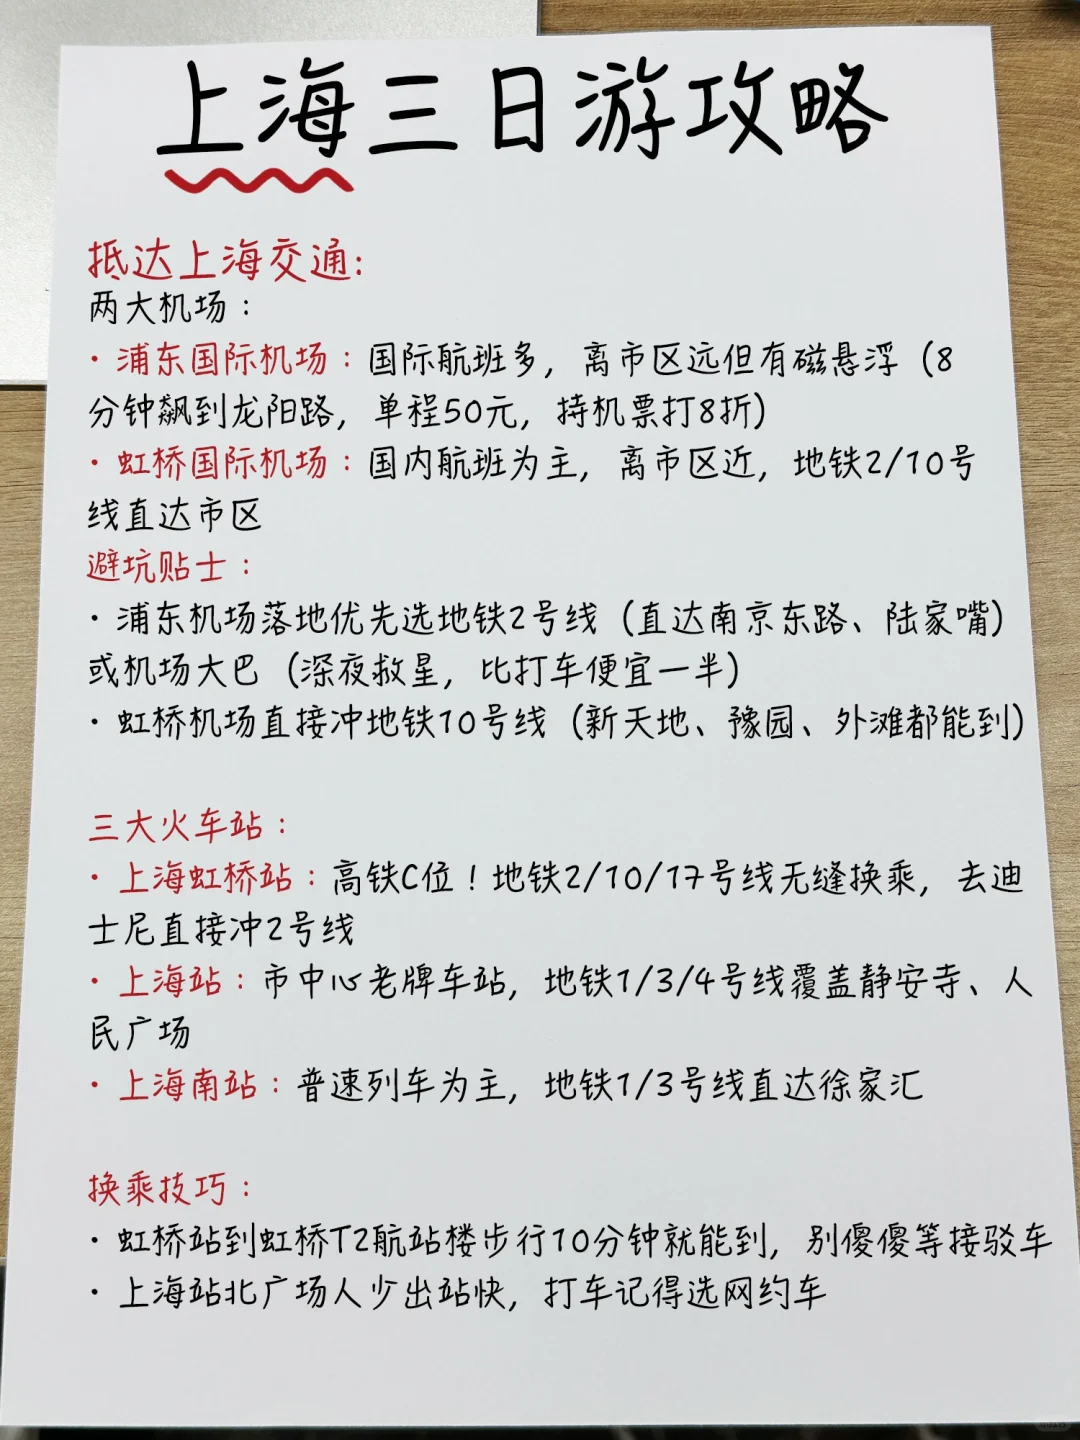 上海三日游攻略
抵达上海交通:
两大机场：
· 浦东国际机场：国际航班多，离市区远但有磁悬浮（8
分钟飙到龙阳路，单程50元，持机票打8折）
· 虹桥国际机场：国内航班为主，离市区近，地铁2/10号
线直达市区
避坑贴士：
· 浦东机场落地优先选地铁2号线（直达南京东路、陆家嘴）
或机场大巴（深夜救星，比打车便宜一半）
· 虹桥机场直接冲地铁10号线（新天地、豫园、外滩都能到）
三大火车站：
· 上海虹桥站：高铁C位！地铁2/10/17号线无缝换乘，去迪
士尼直接冲2号线
· 上海站：市中心老牌车站，地铁1/3/4号线覆盖静安寺、人
民广场
· 上海南站：普速列车为主，地铁1/3号线直达徐家汇
换乘技巧：
· 虹桥站到虹桥T2航站楼步行10分钟就能到，别傻傻等接驳车
· 上海站北广场人少出站快，打车记得选网约车